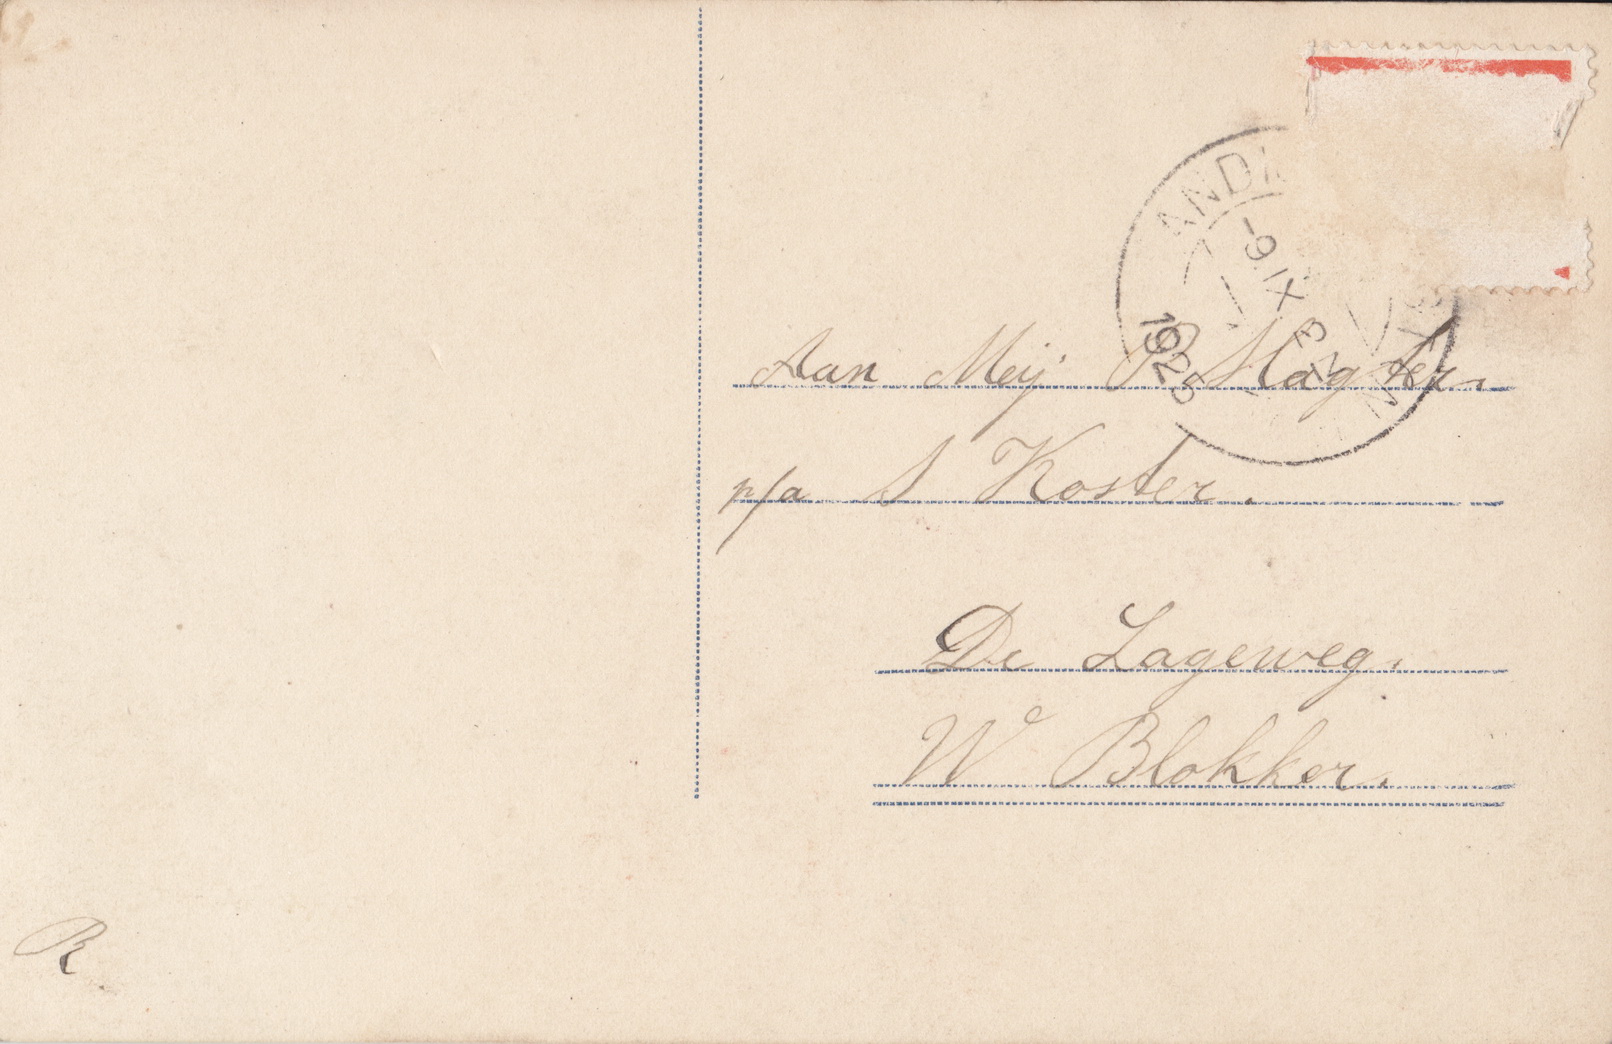 ANDIJ
-9.IX
3-N
1925
Aan Meij P Slagter.
p/a S Koster.
De Lageweg.
W Blokker.
R